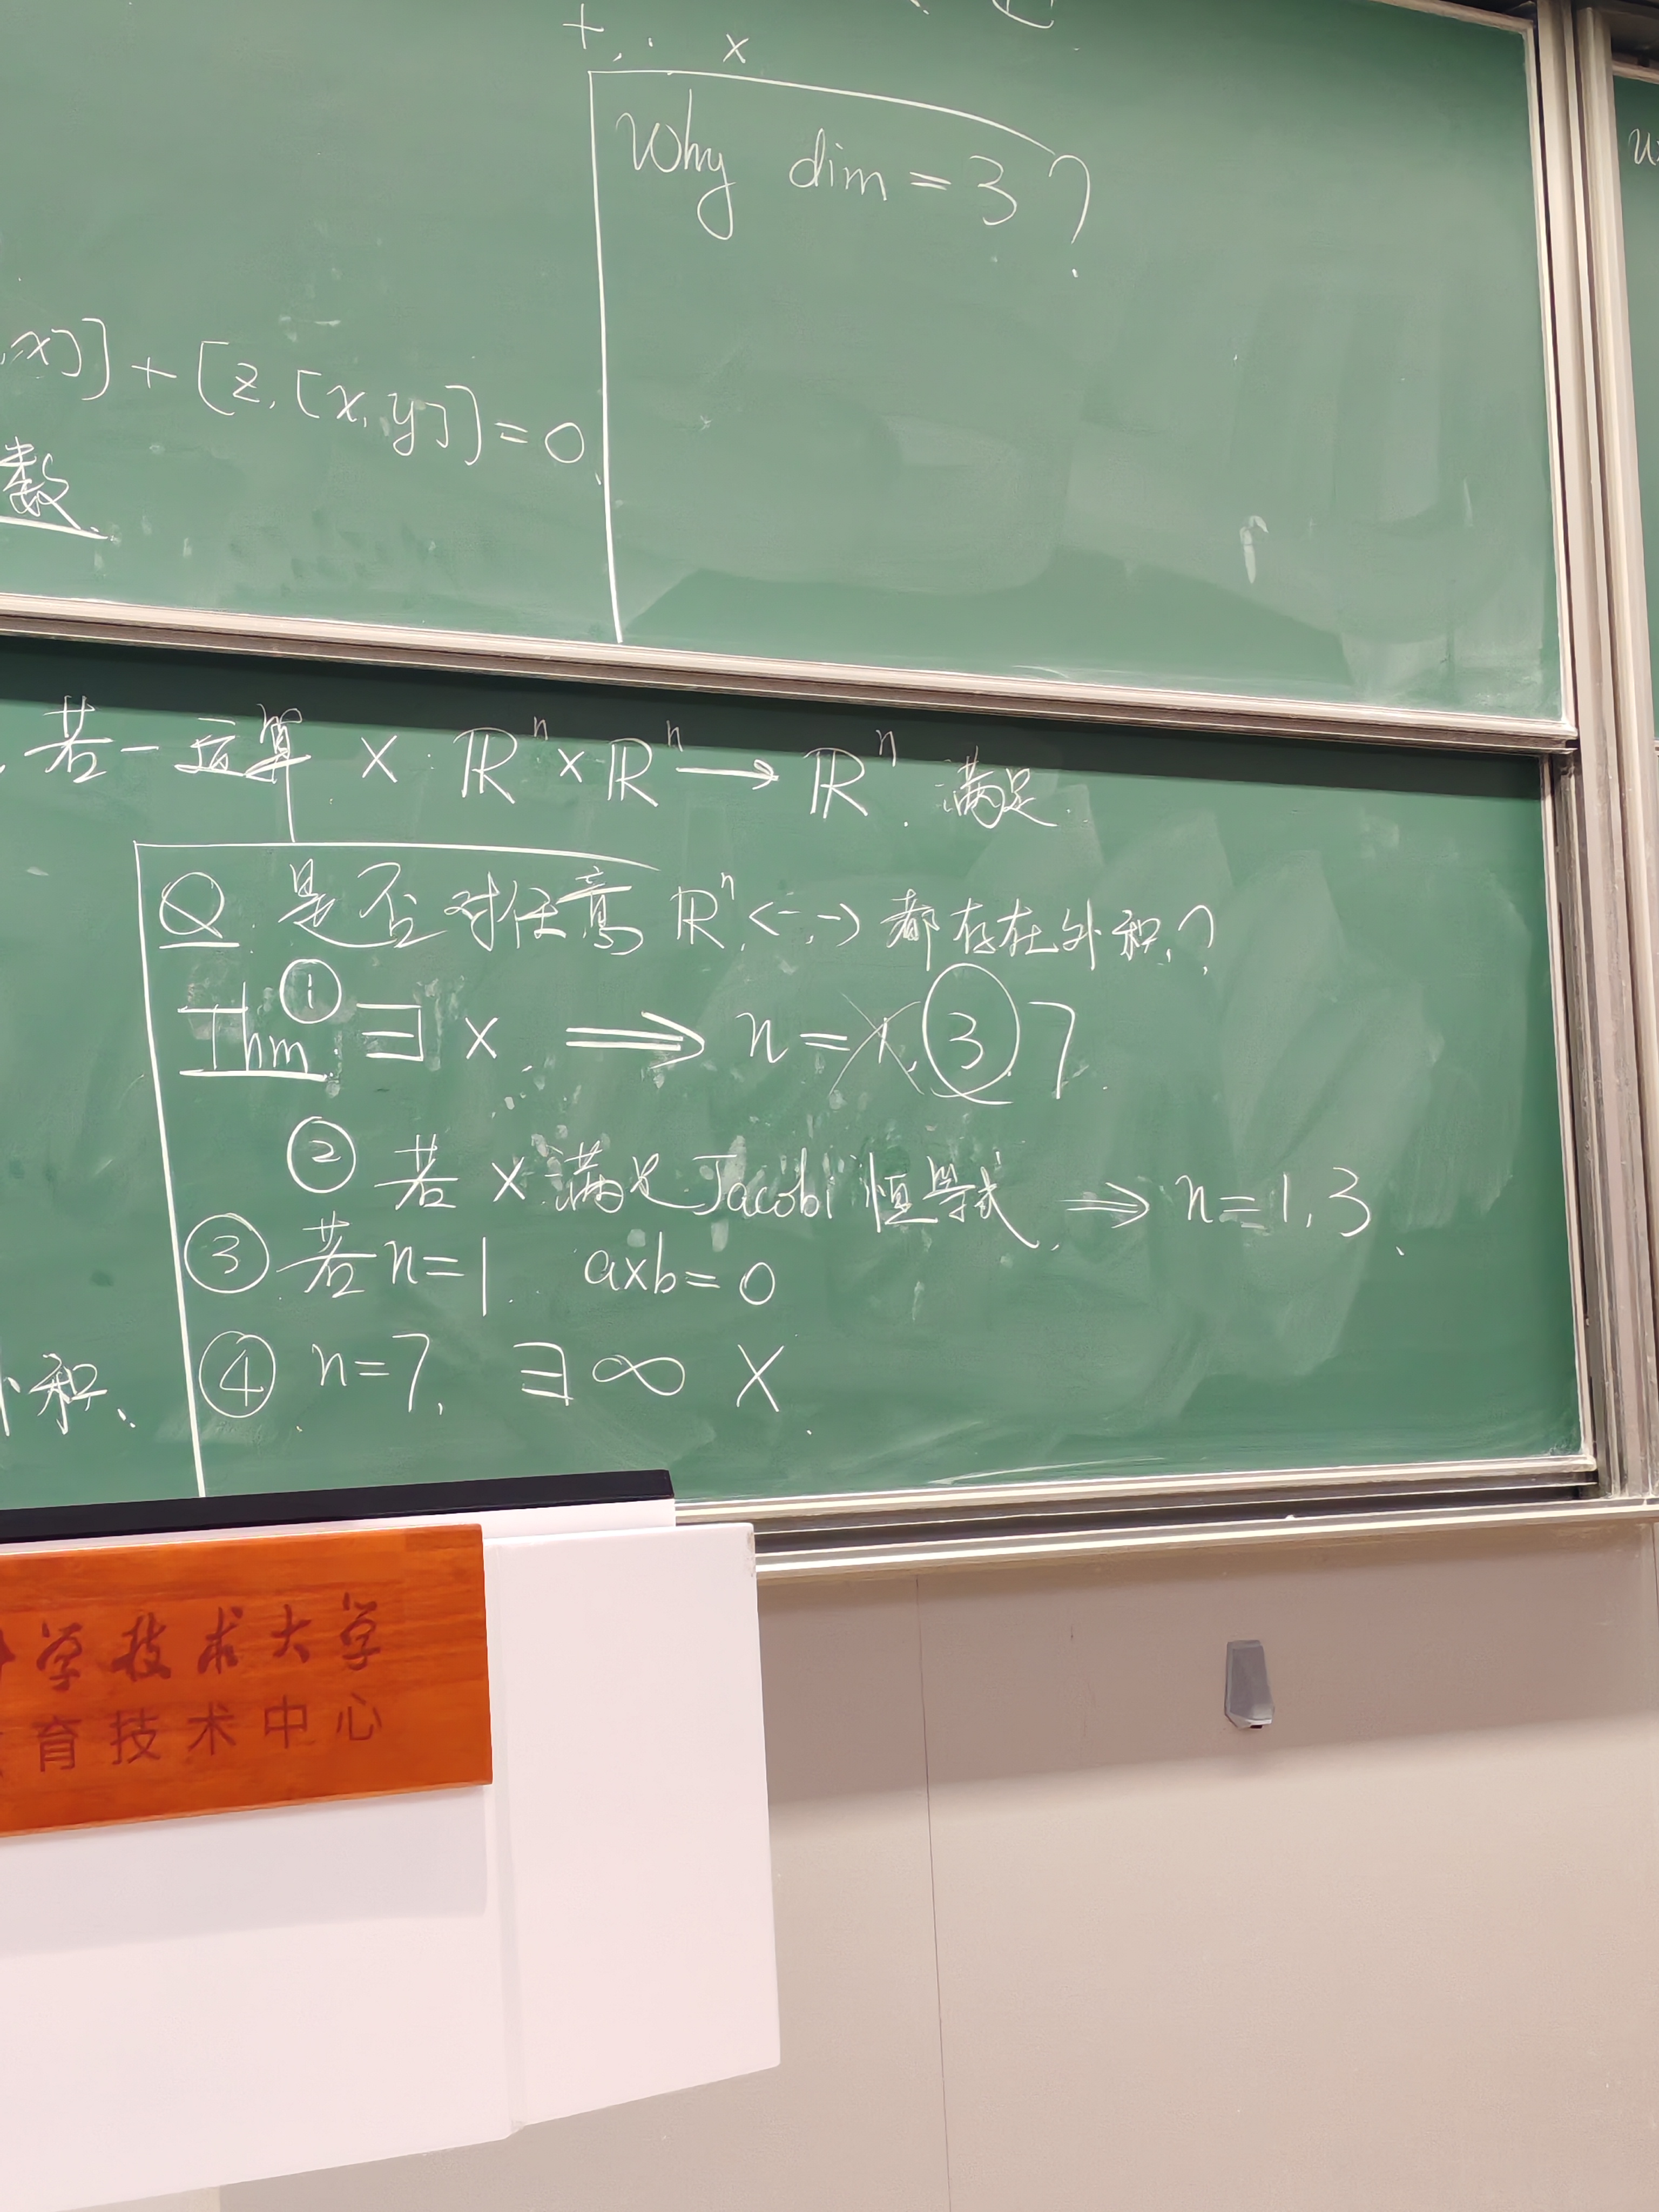 + . · x
Why dim = 3 ?
,x]] + [z, [x, y]] = 0
数.
若一运算 × : ℝⁿ × ℝⁿ ⟶ ℝⁿ. 满足.
Q. 是否对任意 ℝⁿ, <-,-> 都存在外积?
Thm: ① ∃ ×. ⟹ n = 1, 3, 7.
② 若 × 满足 Jacobi 恒等式. ⟹ n = 1, 3.
③ 若 n = 1. a×b = 0
④ n = 7. ∃ ∞ ×.
外积.
学技术大学
育技术中心